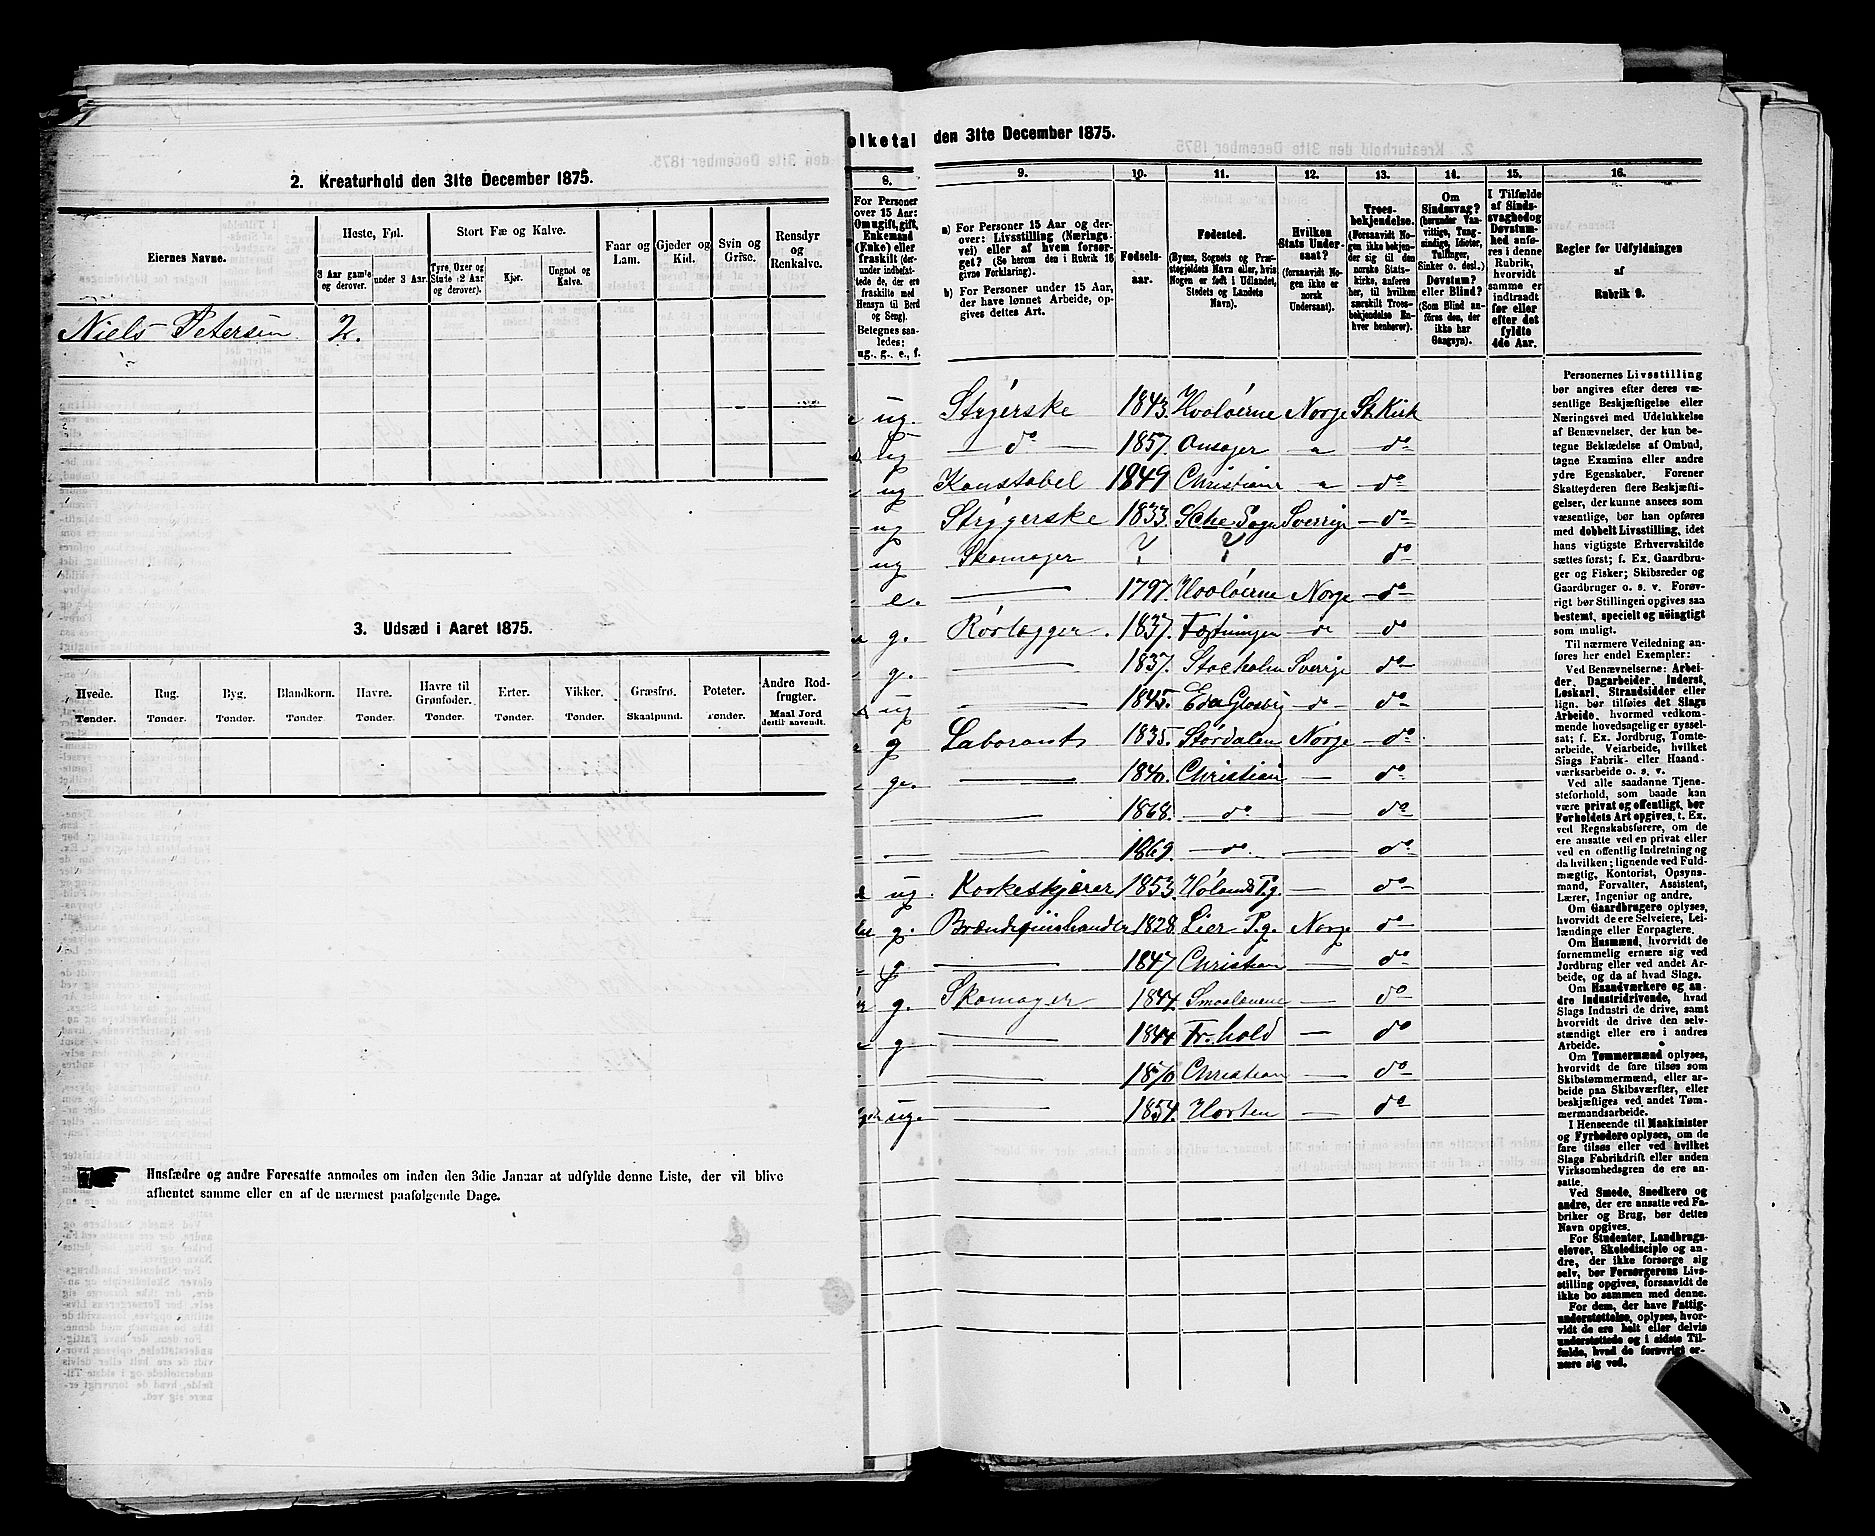 2. Kreaturhold den 31te December 1875.
Eiernes Navne.
Heste, Føl.
3 Aar gamle og derover.
under 3 Aar.
Stort Fæ og Kalve.
Tyre, Oxer og Stude (2 Aar og derover).
Kjør.
Ungnøt og Kalve.
Faar og Lam.
Gjeder og Kid.
Svin og Grise.
Rensdyr og Renkalve.
Niels Petersen 2.
3. Udsæd i Aaret 1875.
Hvede. Rug. Byg. Blandkorn. Havre. Havre til Grønfoder. Erter. Vikker. Græsfrø. Poteter. Andre Rodfrugter.
Tønder. Tønder. Tønder. Tønder. Tønder. Tønder. Tønder. Tønder. Skaalpund. Tønder. Maal Jord dertil anvendt.
Husfædre og andre Foresatte anmodes om inden den 3die Januar at udfylde denne Liste, der vil blive
afhentet samme eller en af de nærmest paafølgende Dage.
olketal den 31te December 1875.
8. 9. 10. 11. 12. 13. 14. 15. 16.
For Personer
over 15 Aar:
Om ugift, gift,
Enkemand
(Enke) eller
fraskilt (der-
under indbefat-
tede de, der ere
fraskilte med
Hensyn til Bord
og Seng).
Betegnes saa-
ledes:
ug., g., e., f.
a) For Personer 15 Aar og der-
over: Livsstilling (Nærings-
vei) eller af hvem forsør-
get? (Se herom den i Rubrik 16
givne Forklaring).
b) For Personer under 15 Aar,
der have lønnet Arbeide, op-
gives dettes Art.
Fødsels-
aar.
Fødested.
(Byens, Sognets og Præ-
stegjeldets Navn eller, hvis
Nogen er født i Udlandet,
Stedets og Landets
Navn).
Hvilken
Stats Under-
saat?
(forsaavidt No-
gen ikke er
norsk
Undersaat).
Troes-
bekjendelse.
(Forsaavidt No-
gen ikke bekjen-
der sig til den
norske Stats-
kirke, anføres
her, til hvilken
særskilt Troes-
bekjendelse En-
hver henhører).
Om
Sindssvag?
(herunder Van-
vittige, Tung-
sindige, Idioter,
Tullinger,
Sinker o. desl.)
Døvstum?
eller Blind?
(Som Blind an-
føres den, der
ikke har
Gangsyn).
I Tilfælde
af Sinds-
svaghed og
Døvstum-
hed anfø-
res i denne
Rubrik,
hvorvidt
samme er
indtraadt
før eller
efter det
fyldte
4de Aar.
Regler for Udfyldningen
af
Rubrik 9.
ug. Strygerske 1843. Hvaløerne Norge St. Kirk
ug do 1857. Onsøer do
ug Konstabel 1849 Christiania do
ug Strygerske 1833. Sverrige do
ug Skomager ? ? do
e. 1797. Hvaløerne Norge do
g. Rørlægger. 1837. do do
g. 1837. Stocholm Sverrige do
ug 1845. do do
g Laborant 1835. Stordalen Norge do
g. 1840. Christian do
1868. do do
1869. do. do
ug. Korkeskjærer 1853. Hølands Pg. do
g. Brændeviinshandler 1828. Lier Pg. Norge do
g 1847 Christian do
g. Skomager 1844. Smaalenene do
g 1844 Fr. hald do
1870 Christian do
ug. 1854. Horten do
Personernes Livsstilling
bør angives efter deres væ-
sentlige Beskjæftigelse eller
Næringsvei med Udelukkelse
af Benævnelser, der kun be-
tegne Beklædelse af Ombud,
tagne Examina eller andre
ydre Egenskaber. Forener
Skatteyderen flere Beskjæfti-
gelser, der kunne ansees som
væsentlige, bør han opføres
med dobbelt Livsstilling, idet
hans vigtigste Erhvervskilde
sættes først; f. Ex. Gaardbru-
ger og Fisker; Skibsreder og
Gaardbruger o. s. v. Forøv-
rigt bør Stillingen opgives saa
bestemt, specielt og nøiagtigt
som muligt.
Til nærmere Veiledning an-
føres her endel Exempler:
Ved Benævnelserne: Arbei-
der, Dagarbeider, Inderst,
Løskarl, Strandsidder eller
lign. bør tilføies det Slags
Arbeide, hvormed vedkom-
mende hovedsagelig er syssel-
sat; f. Ex. Jordbrug, Tomte-
arbeide, Veiarbeide, hvilket
Slags Fabrik- eller Haand-
værksarbeide o. s. v.
Ved alle saadanne Tjene-
steforhold, som baade kan
være privat og offentligt, bør
Forholdets Art opgives, t. Ex.
ved Regnskabsførere, om de
ere ansatte ved en privat eller
ved en offentlig Indretning og
da hvilken; lignende ved Fuld-
mægtig, Kontorist, Opsyns-
mand, Forvalter, Assistent,
Lærer, Ingeniør og andre.
Om Gaardbrugere oplyses,
hvorvidt de ere Selveiere, Lei-
lændinge eller Forpagtere.
Om Husmænd, hvorvidt de
fornemmelig ernære sig ved
Jordbrug eller ved andet Ar-
beide, og da af hvad Slags.
Om Haandværkere og an-
dre Industridrivende, hvad
Slags Industri de drive, samt
hvorvidt de drive den selv-
stændigt eller ere i andres
Arbeide.
Om Tømmermænd oplyses,
hvorvidt de fare tilsøs som
Skibstømmermænd, eller ar-
beide paa Skibsværfter, eller
beskjæftiges ved andet Tøm-
mermandsarbeide.
I Henseende til Maskinister
og Fyrbødere oplyses, om de
fare tilsøs eller ved hvilket
Slags Fabrikdrift eller anden
Virksomhedsgren de ere an-
satte.
Ved Smede, Snedkere og
andre, der ere ansatte ved Fa-
briker og Brug, bør dettes
Navn opgives.
For Studenter, Landbrugs-
elever, Skoledisciple og an-
dre, der ikke forsørge sig
selv, bør Forsørgerens Livs-
stilling opgives, forsaavidt de
ikke bo sammen med denne.
For dem, der have Fattig-
understøttelse, oplyses, hvor-
vidt de ere helt eller delvis
understøttede og i sidste Til-
fælde, hvad de forøvrigt er-
nære sig ved.